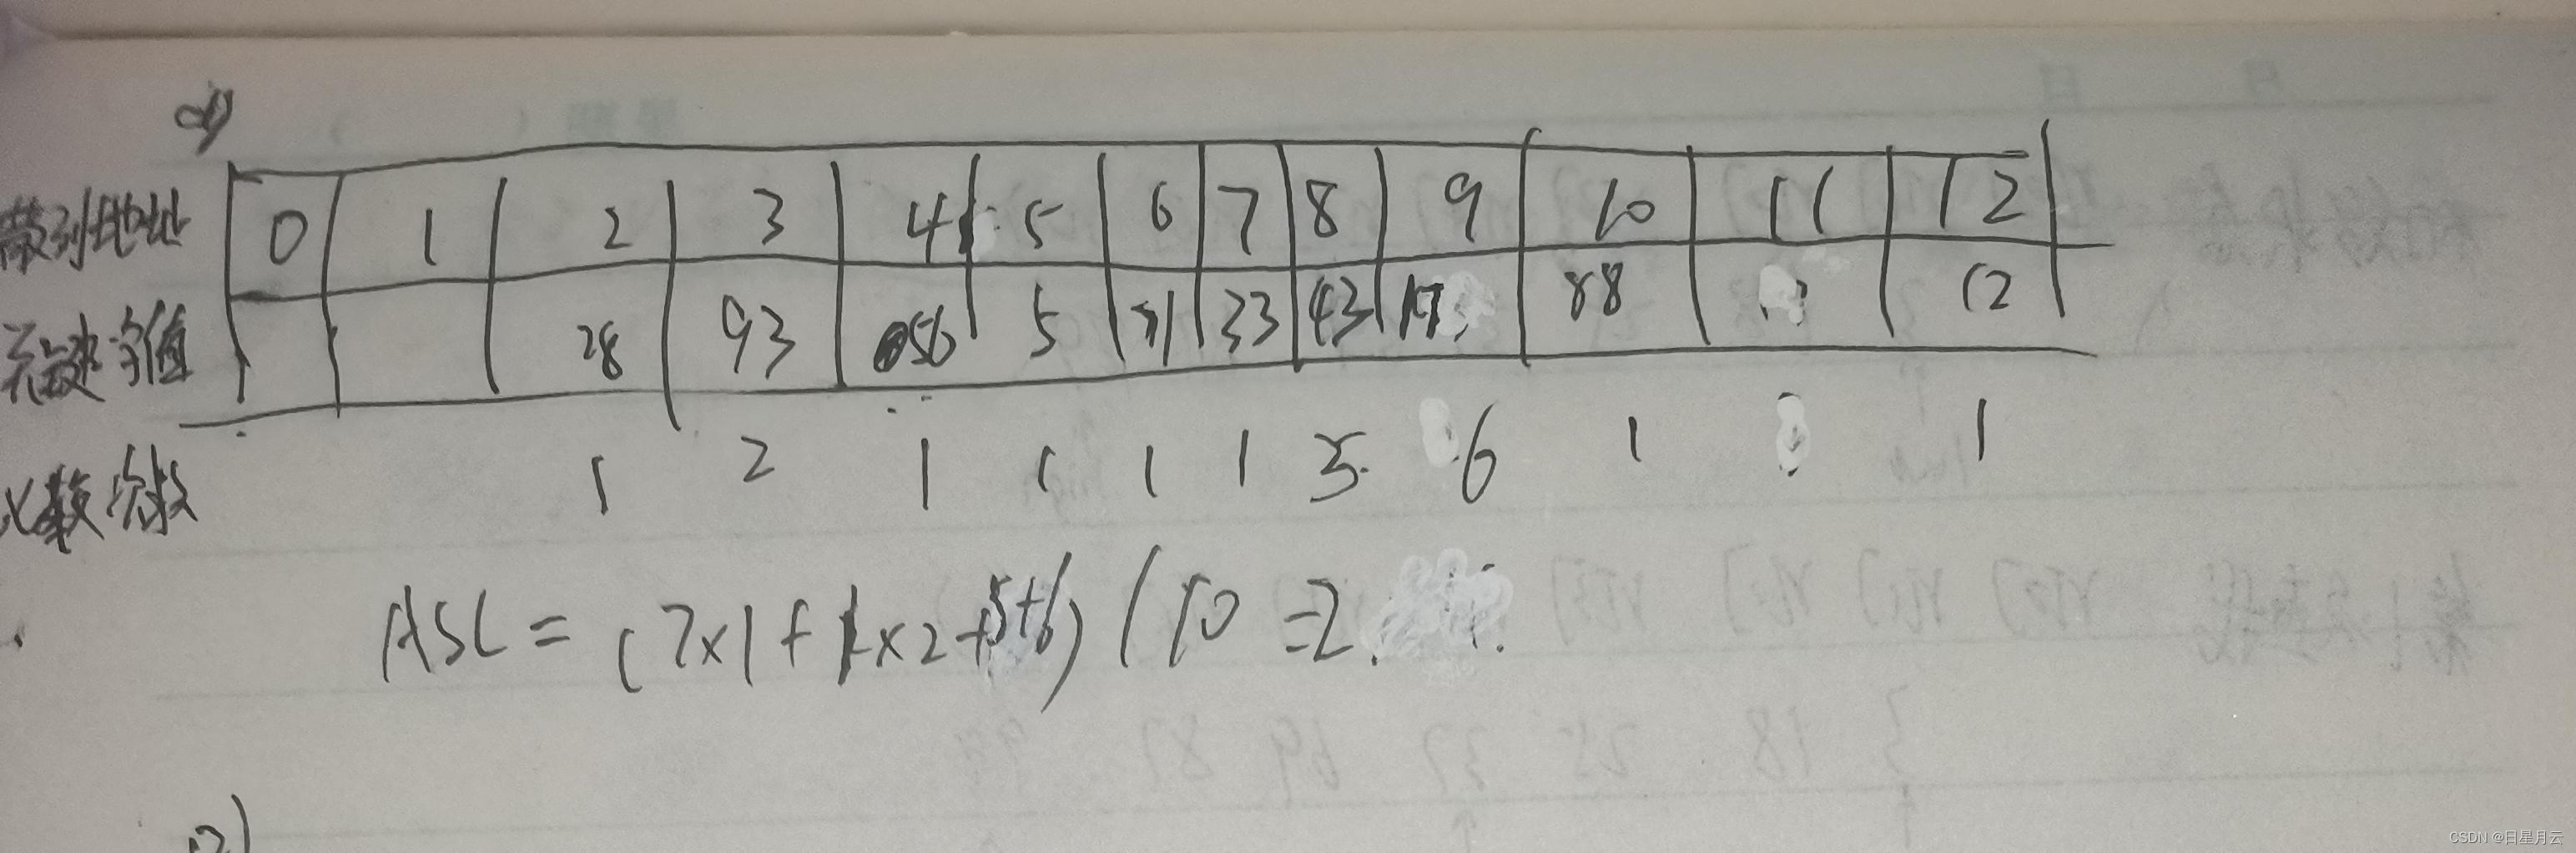 散列地址 0 1 2 3 4 5 6 7 8 9 10 11 12
关键字值 28 93 56 5 71 33 43 17 88 12
次数 1 2 1 1 1 1 5 6 1 1
ASL = (7×1+1×2+5+6)/10=2.
2)
CSDN @日星月云